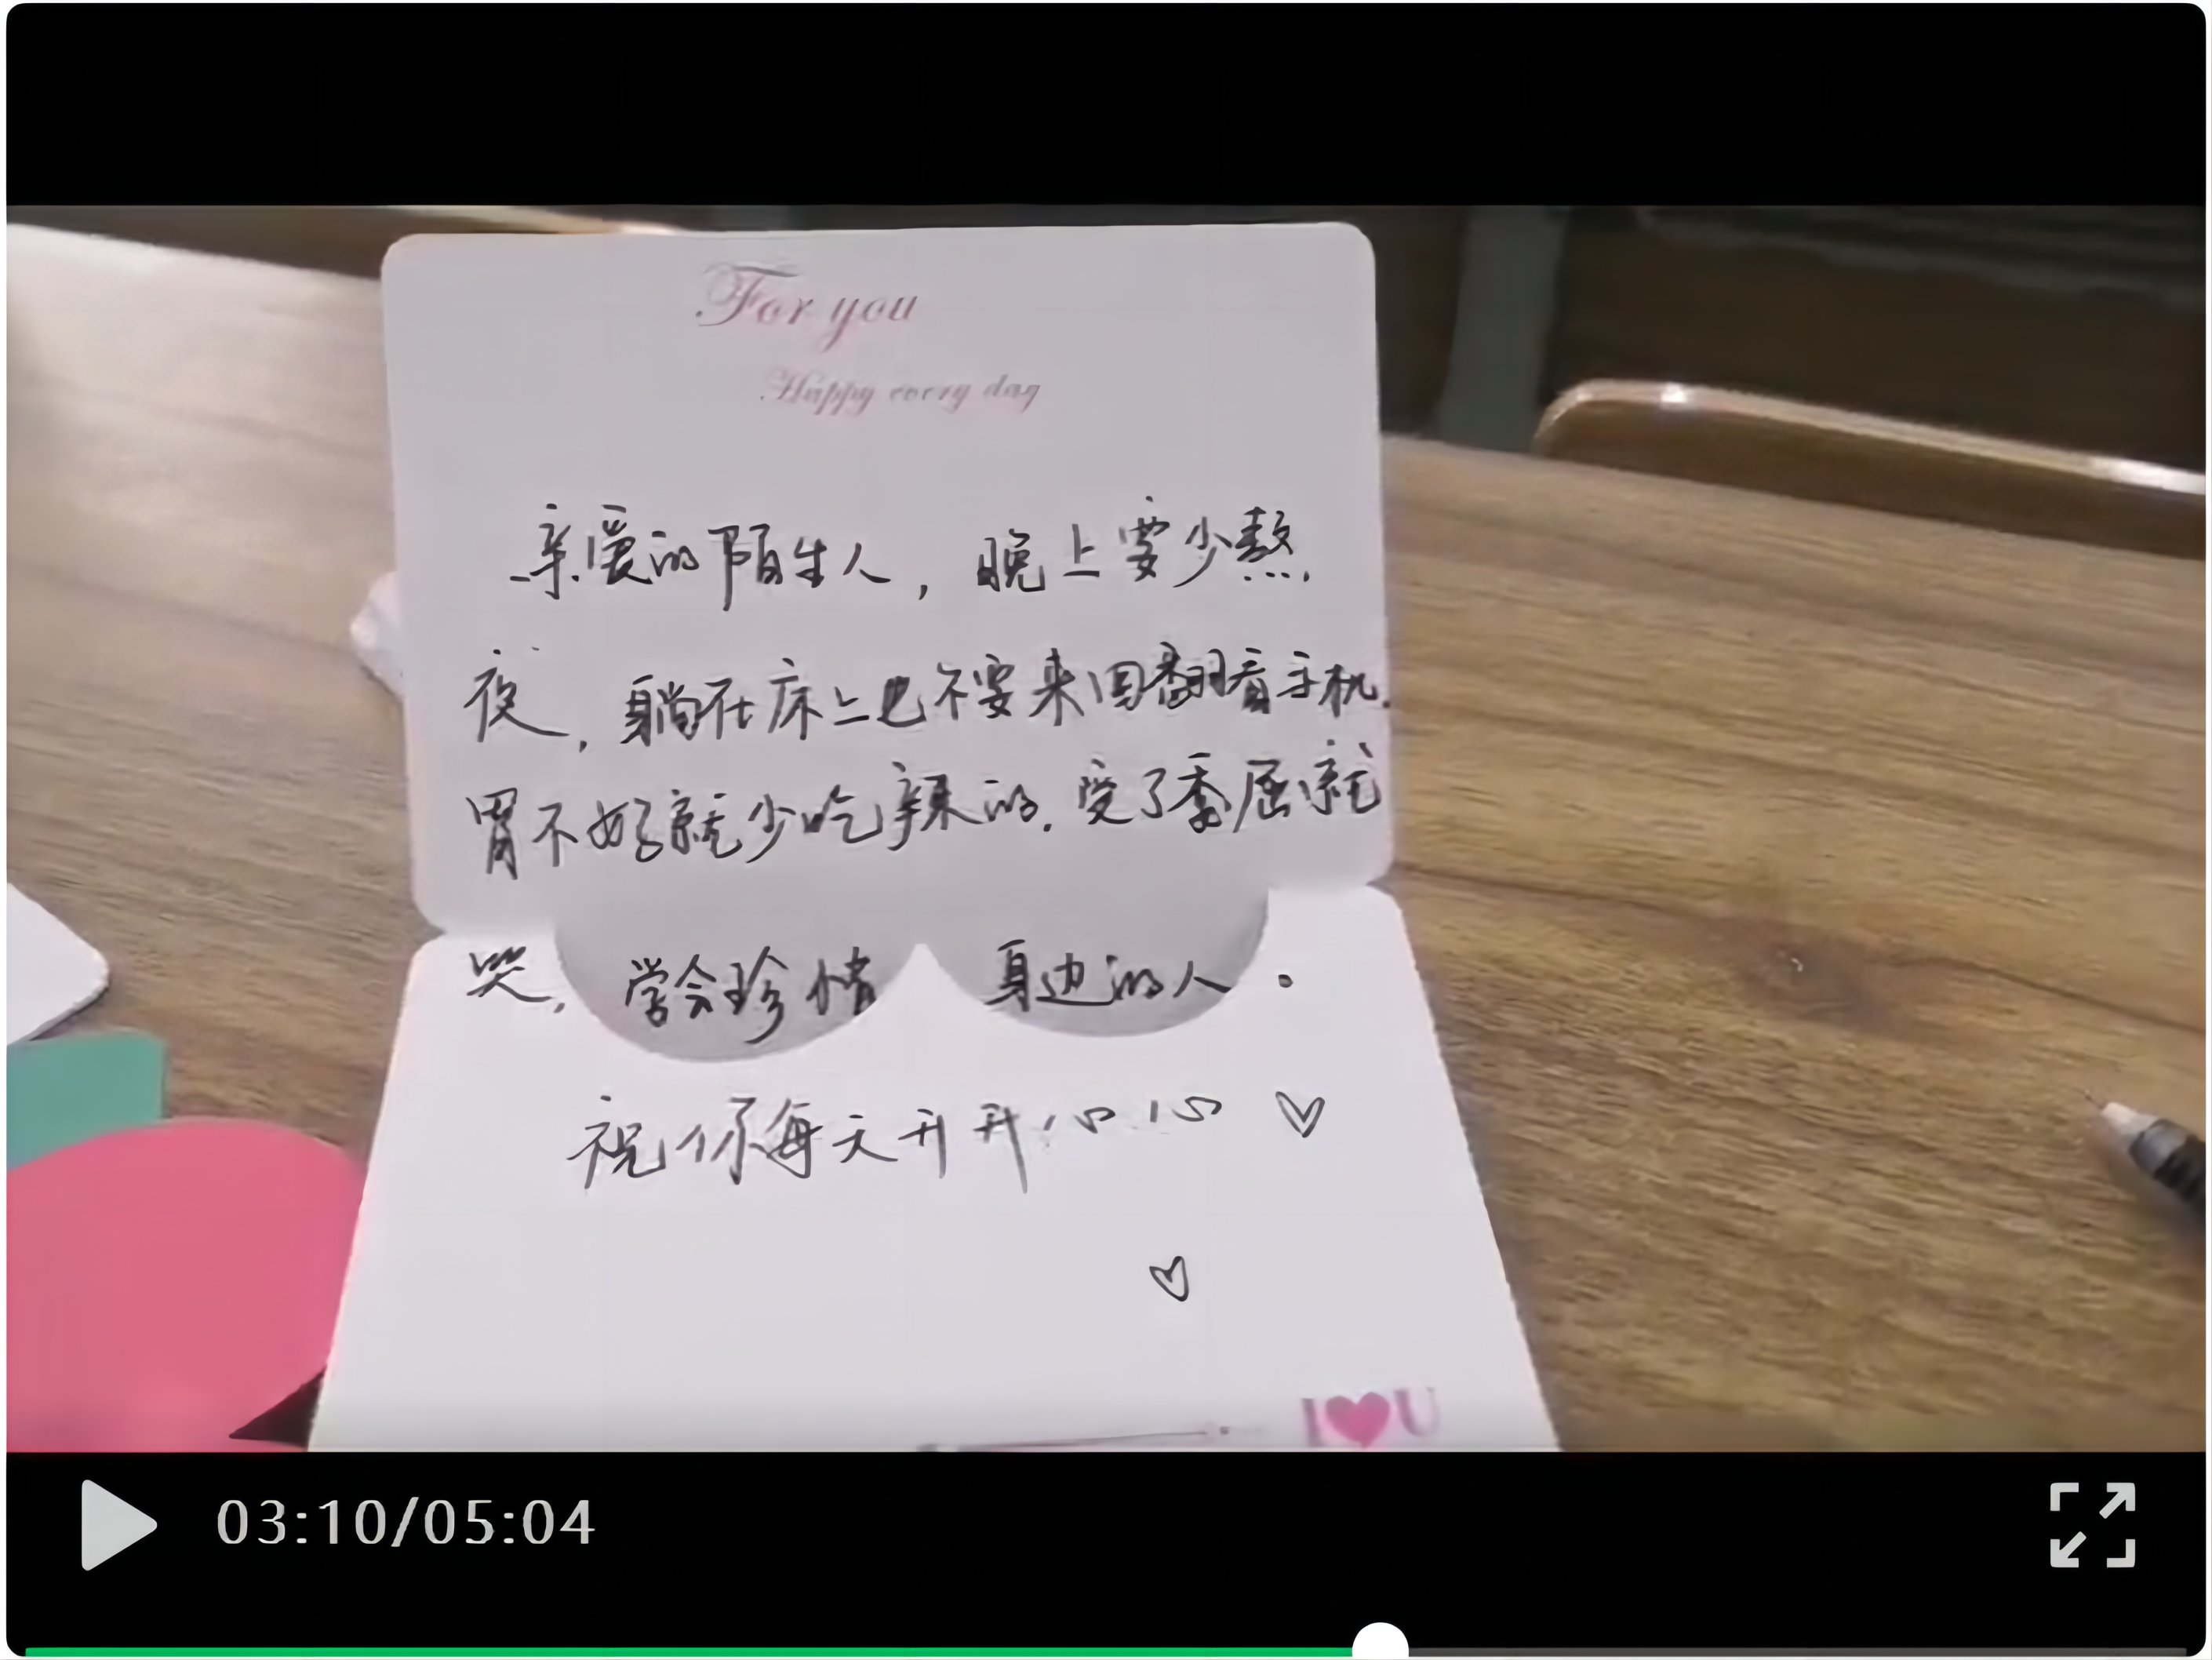 For you
Happy every day
亲爱的陌生人，晚上要少熬
夜，躺在床上也不要来回翻看手机.
胃不好就少吃辣的.受了委屈就
哭，学会珍惜 身边的人.
祝你每天开开心心♡
♡
I♥U
03:10/05:04